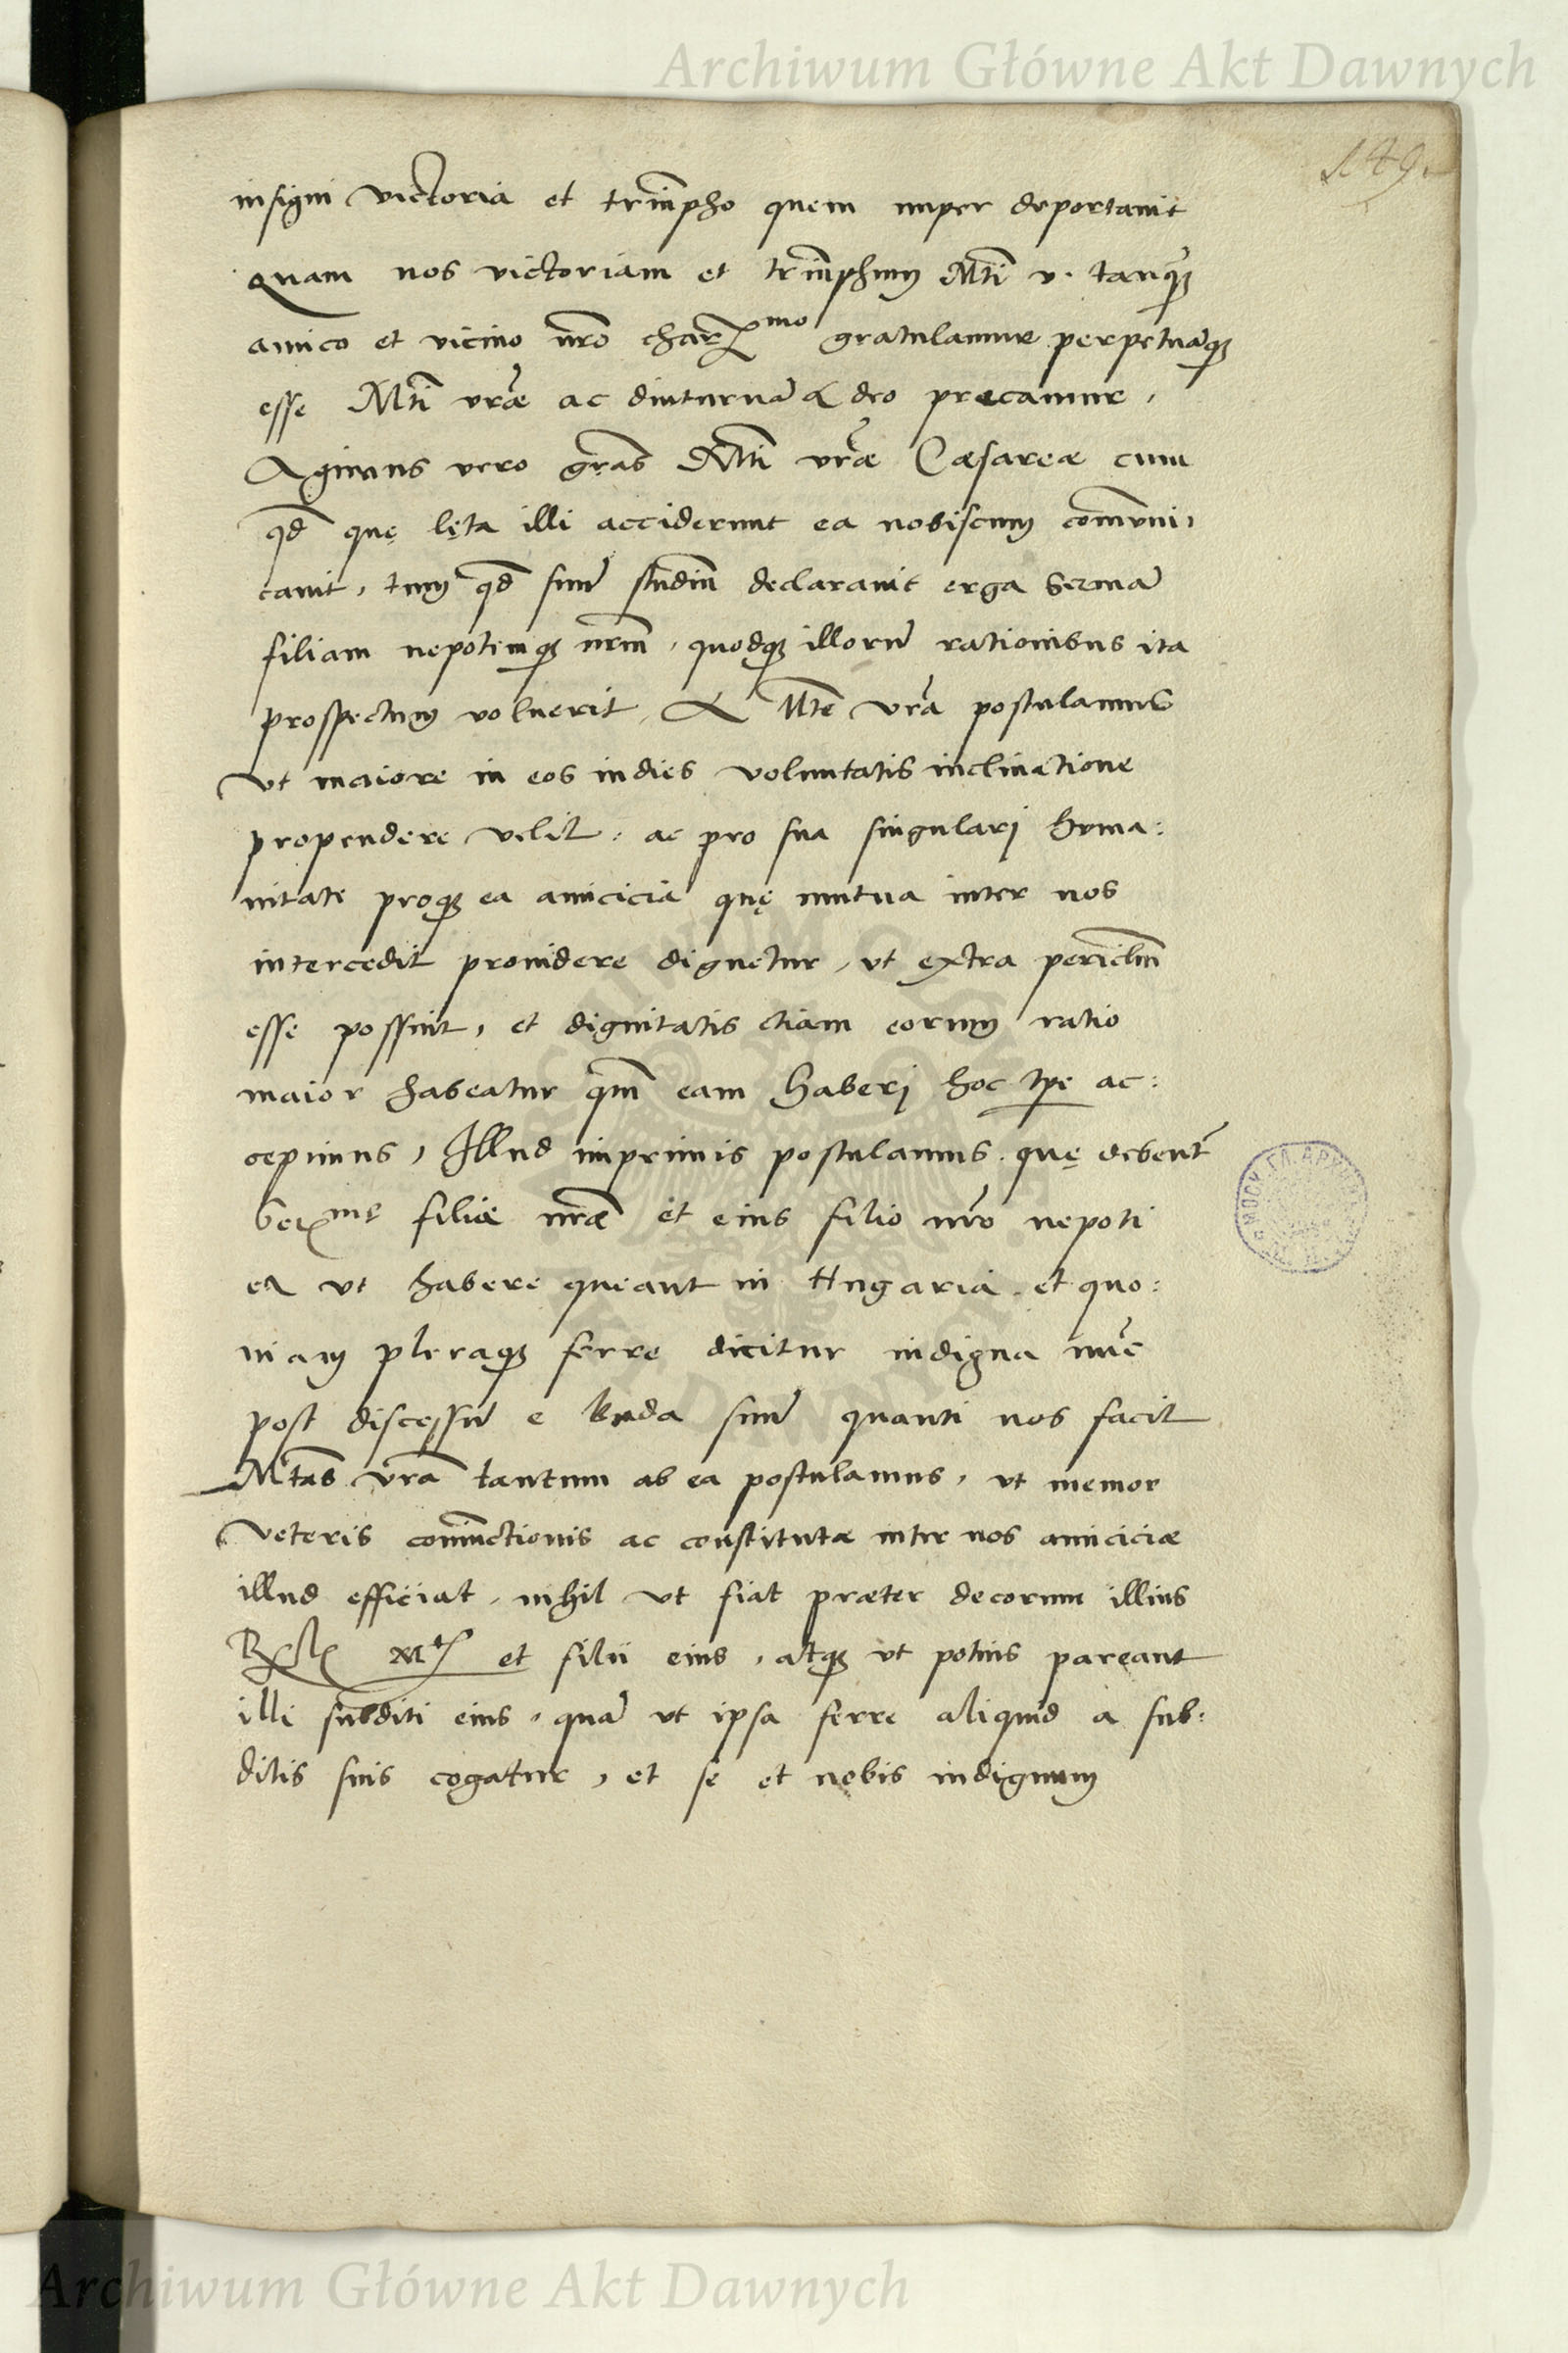 Archiwum Główne Akt Dawnych
149.
insigni victoria et triũpho quem nuper deportauit
Quam nos victoriam et triũphum Mti v. tanq̃
amico et vicino nr̃o chariss^mo gratulamur perpetuãq;
esse Mti vr̃æ ac diuturnã a deo precamur,
Agimus vero gr̃as Mti vr̃æ Cæsareæ cum
qd̃ quę lęta illi acciderunt ea nobiscum com̃uni,
cauit, tum qd̃ suũ studiũ declarauit erga Sermã
filiam nepotemq; nrm̃, quodq; illorũ rationibus ita
prospectum voluerit, A Mte vr̃a postulamus
vt maiore in eos indies voluntatis inclinatione
propendere velit, ac pro sua singularj huma:
nitate proq; ea amicicia quę mutua inter nos
intercedit prouidere dignetur, vt extra periclm̃
esse possint, et dignitatis etiam eorum ratio
maior habeatur qm̃ eam haberj hoc tp̃e ac:
cepimus, Illud imprimis postulamus. quę debent̃
Ser^mę filiæ nr̃æ et eius filio nr̃o nepoti
ea vt habere queant in Hungaria. et quo:
niam pleraq; ferre dicitur indigna nũc
post discessũ e Buda suũ quanti nos facit
Mtas vr̃a tantum ab ea postulamus, vt memor
veteris coniũctionis ac constitutæ inter nos amiciciæ
illud efficiat, nihil vt fiat præter decorum illius
Rlis Mtis et filii eius, atq; vt potius pareant
illi subditi eius, quã vt ipsa ferre aliquid a sub:
ditis suis cogatur, et se et nobis indignum
Archiwum Główne Akt Dawnych